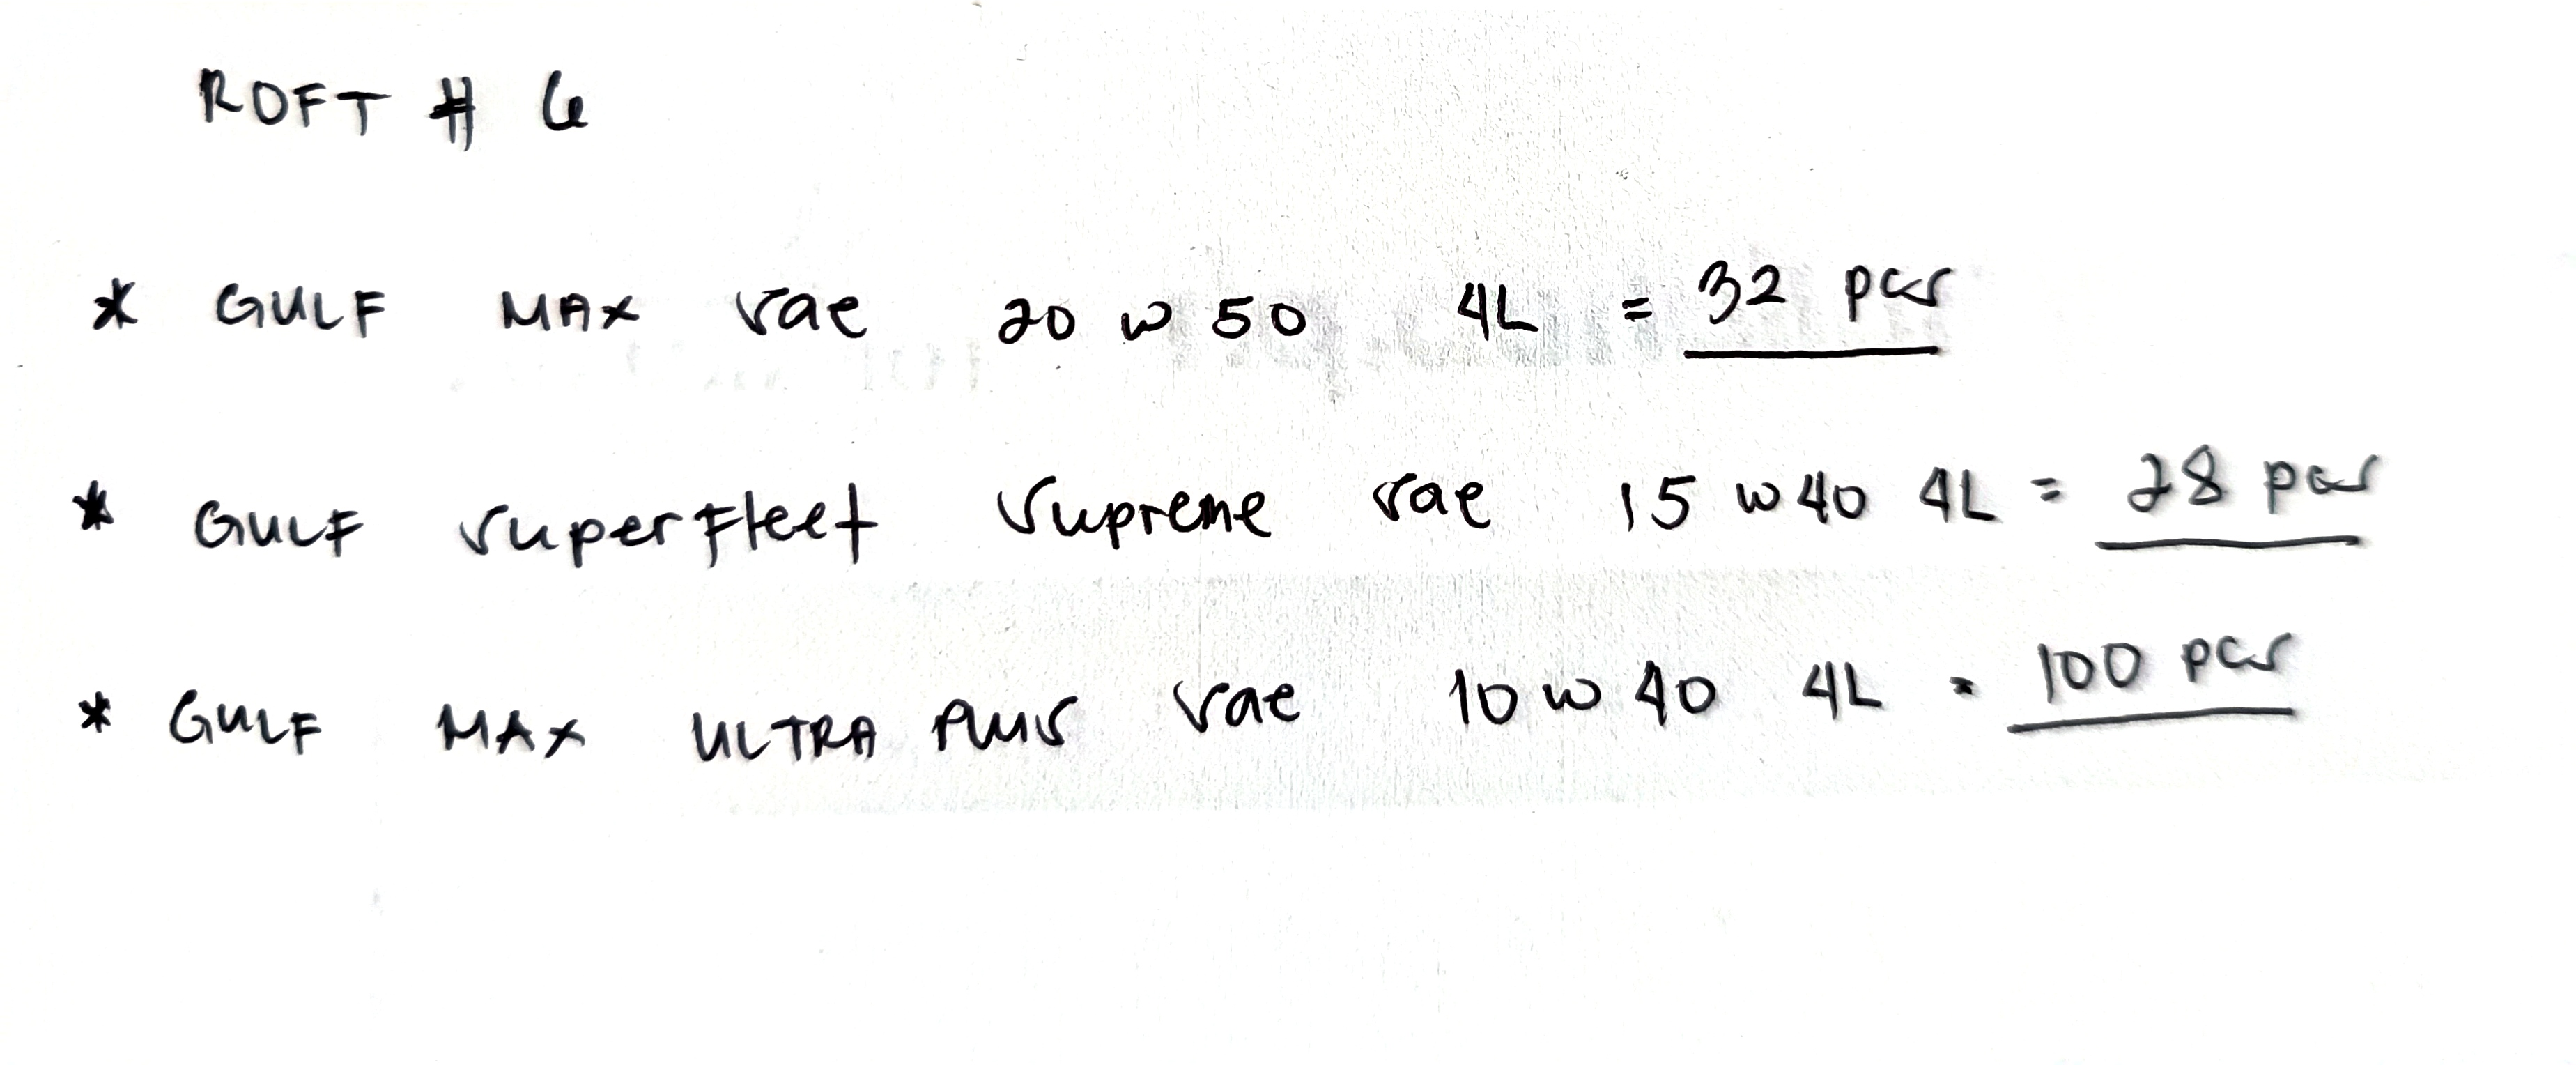 ROFT # 6
* GULF MAX sae 20 w 50 4L = 32 pcs
* GULF superfleet supreme sae 15 w 40 4L = 28 pcs
* GULF MAX ULTRA PLUS sae 10 w 40 4L = 100 pcs